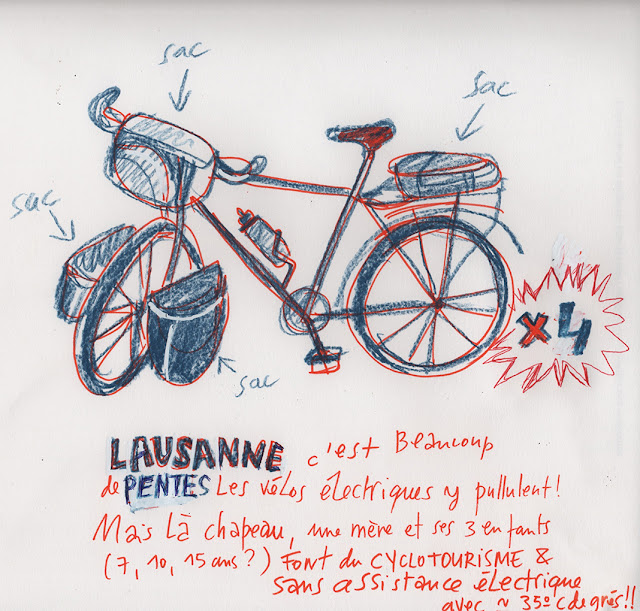 sac
sac
sac
sac
x4
LAUSANNE c'est Beaucoup
de PENTES Les vélos électriques y pullulent!
Mais Là chapeau, une mère et ses 3 enfants
(7, 10, 15 ans ?) FONT du CYCLOTOURISME &
sans assistance électrique
avec ~ 35° c degrés!!